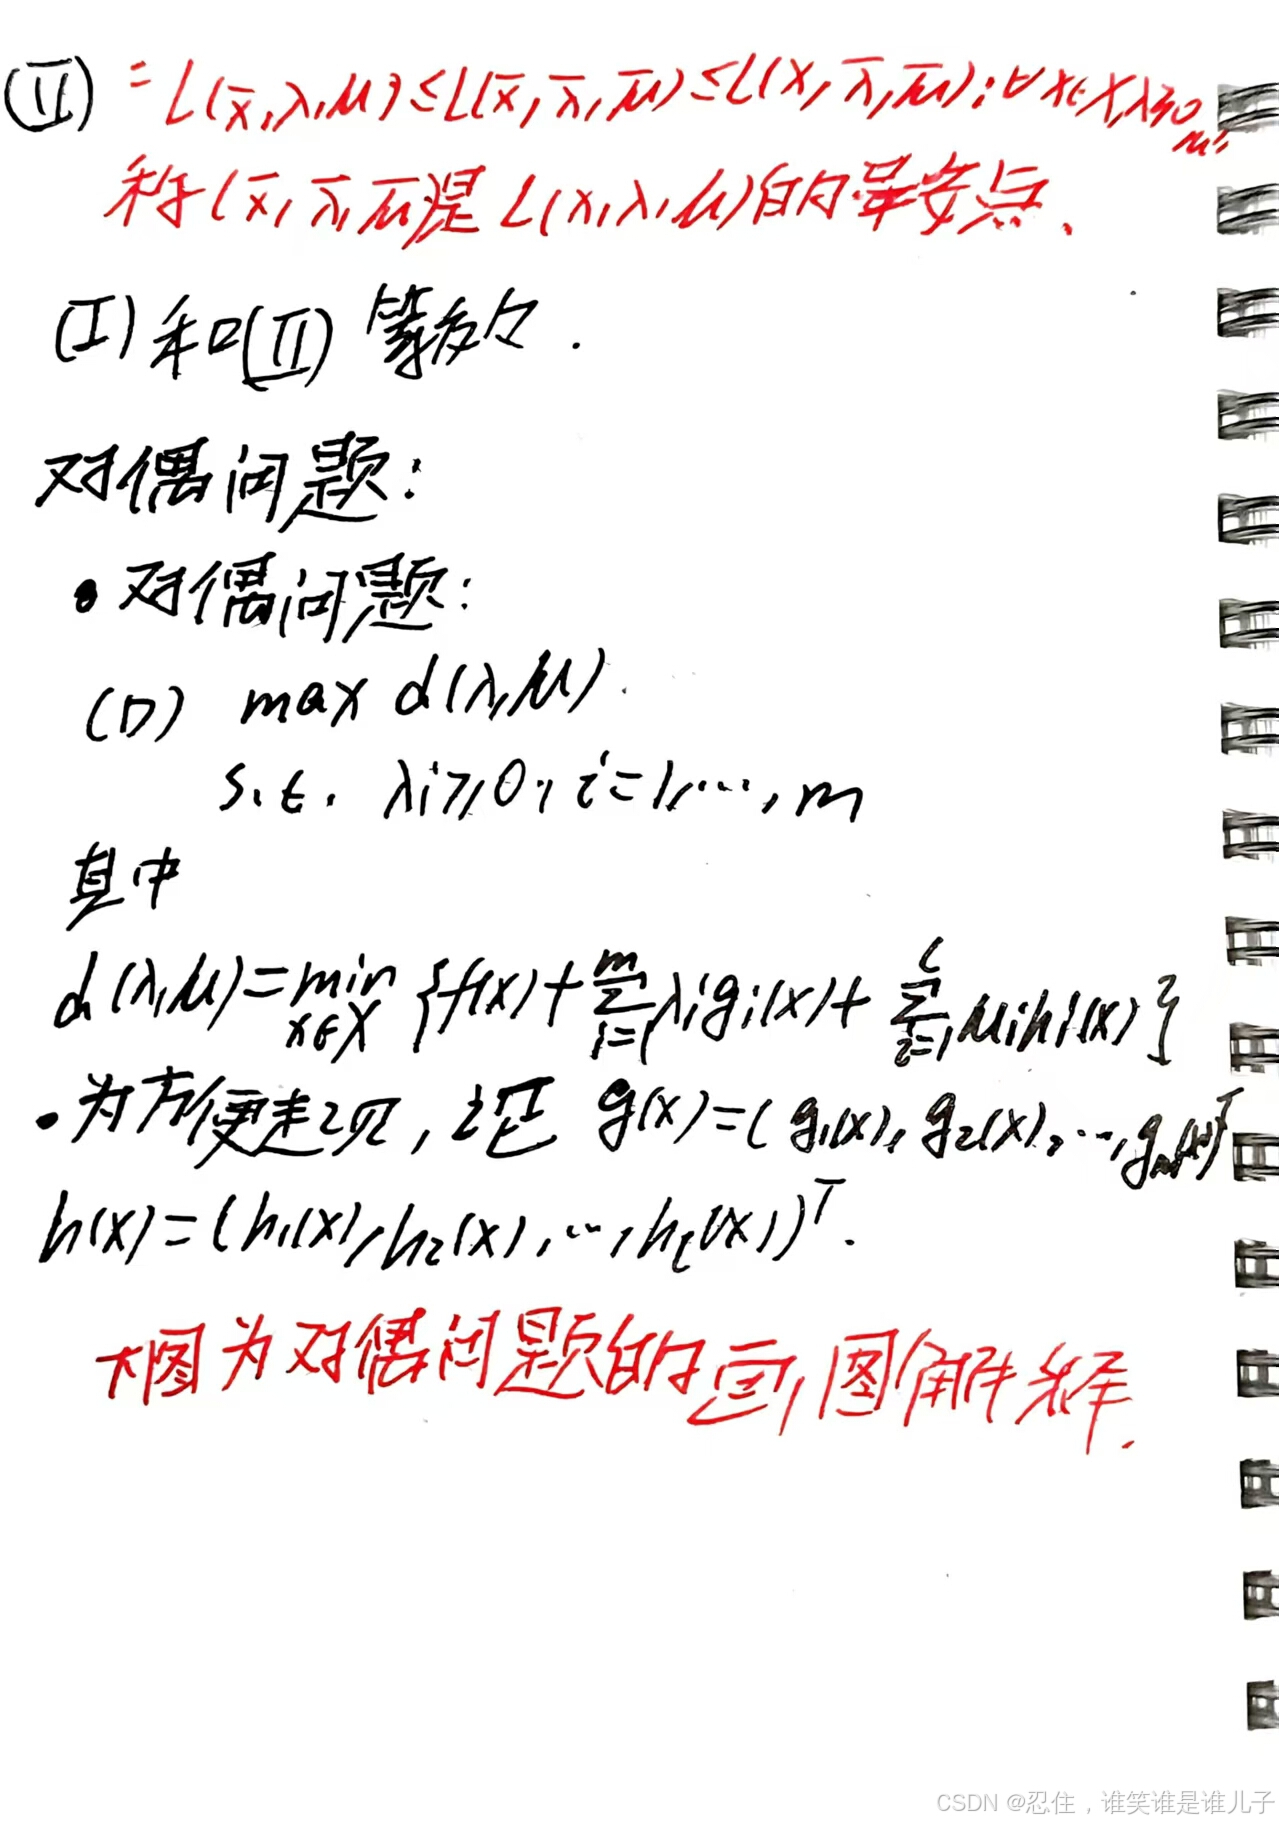 (II) = L(x̄,λ,μ)≤L(x̄,λ̄,μ̄)≤L(x,λ̄,μ̄);∀x∈X,λ≥0
称(x̄,λ̄,μ̄)是L(x,λ,μ)的鞍点.
(I)和(II)等效.
对偶问题:
• 对偶问题:
(D) max d(λ,μ).
s.t. λi≥0, i=1,…,m
其中
d(λ,μ)=min x∈X {f(x)+∑ i=1 m λigi(x)+∑ i=1 l μihi(x)}
• 为方便起见,记 g(x)=(g1(x),g2(x),…,gm(x))T
h(x)=(h1(x),h2(x),…,hl(x))T.
下图为对偶问题的画图解释.
CSDN @忍住，谁笑谁是谁儿子